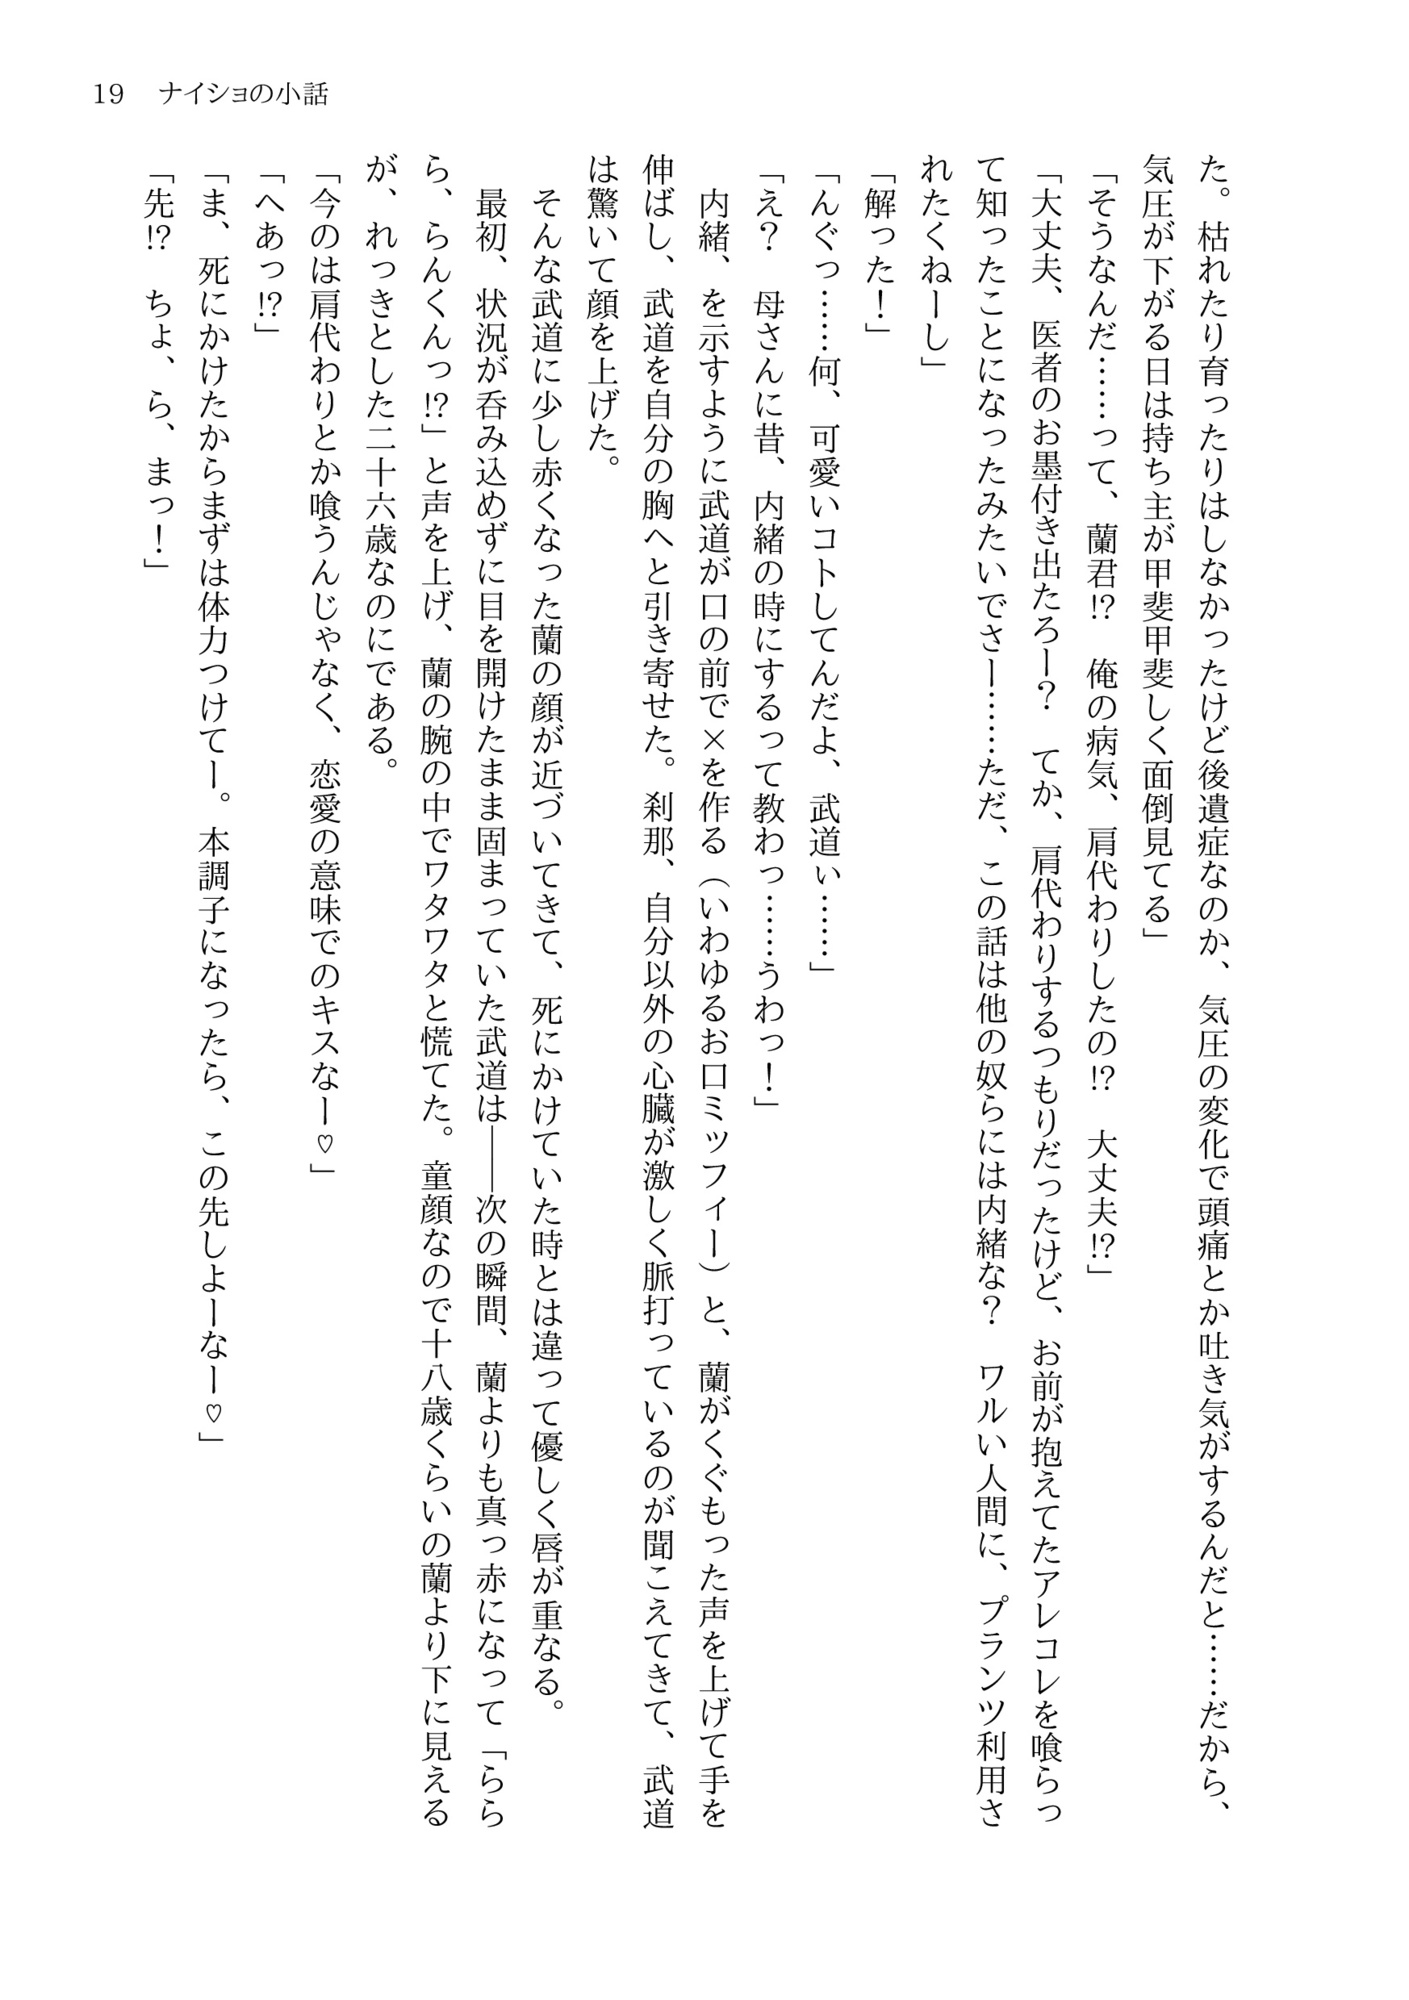 19　ナイショの小話
た。枯れたり育ったりはしなかったけど後遺症なのか、気圧の変化で頭痛とか吐き気がするんだと……だから、
気圧が下がる日は持ち主が甲斐甲斐しく面倒見てる」
「そうなんだ……って、蘭君!?　俺の病気、肩代わりしたの!?　大丈夫!?」
「大丈夫、医者のお墨付き出たろー？　てか、肩代わりするつもりだったけど、お前が抱えてたアレコレを喰らっ
て知ったことになったみたいでさー……ただ、この話は他の奴らには内緒な？　ワルい人間に、プランツ利用さ
れたくねーし」
「解った！」
「んぐっ……何、可愛いコトしてんだよ、武道ぃ……」
「え？　母さんに昔、内緒の時にするって教わっ……うわっ！」
　内緒、を示すように武道が口の前で×を作る（いわゆるお口ミッフィー）と、蘭がくぐもった声を上げて手を
伸ばし、武道を自分の胸へと引き寄せた。刹那、自分以外の心臓が激しく脈打っているのが聞こえてきて、武道
は驚いて顔を上げた。
　そんな武道に少し赤くなった蘭の顔が近づいてきて、死にかけていた時とは違って優しく唇が重なる。
　最初、状況が呑み込めずに目を開けたまま固まっていた武道は――次の瞬間、蘭よりも真っ赤になって「らら
ら、らんくんっ!?」と声を上げ、蘭の腕の中でワタワタと慌てた。童顔なので十八歳くらいの蘭より下に見える
が、れっきとした二十六歳なのにである。
「今のは肩代わりとか喰うんじゃなく、恋愛の意味でのキスなー♡」
「へあっ!?」
「ま、死にかけたからまずは体力つけてー。本調子になったら、この先しよーなー♡」
「先!?　ちょ、ら、まっ！」